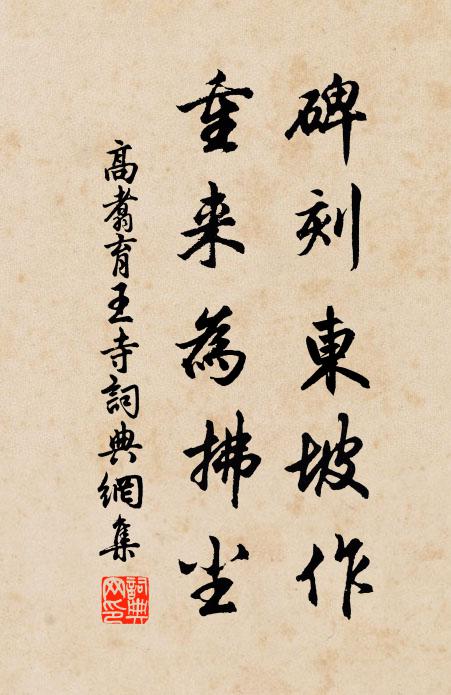 碑刻東坡作
重来為拂尘
高翥育王寺詞典網集
詞典网印